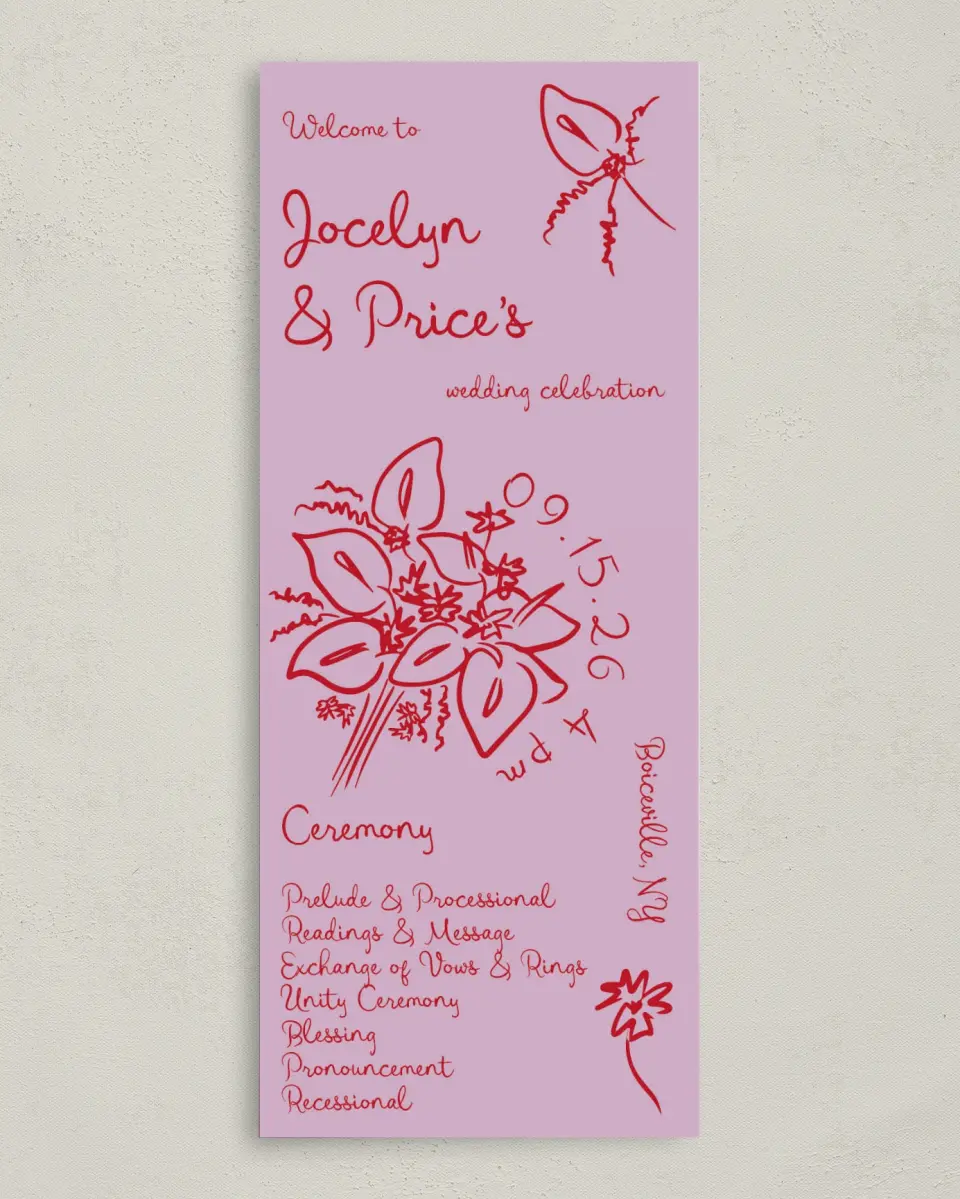 Welcome to
Jocelyn
& Price's
wedding celebration
09.15.26
4 pm
Boiceville, NY
Ceremony
Prelude & Processional
Readings & Message
Exchange of Vows & Rings
Unity Ceremony
Blessing
Pronouncement
Recessional